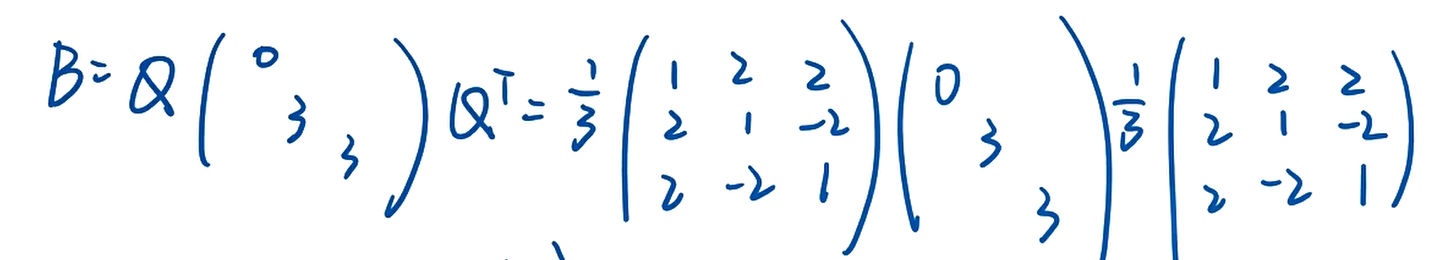 B = Q \begin{pmatrix} 0 & & \\ & 3 & \\ & & 3 \end{pmatrix} Q^T = \frac{1}{3} \begin{pmatrix} 1 & 2 & 2 \\ 2 & 1 & -2 \\ 2 & -2 & 1 \end{pmatrix} \begin{pmatrix} 0 & & \\ & 3 & \\ & & 3 \end{pmatrix} \frac{1}{3} \begin{pmatrix} 1 & 2 & 2 \\ 2 & 1 & -2 \\ 2 & -2 & 1 \end{pmatrix}